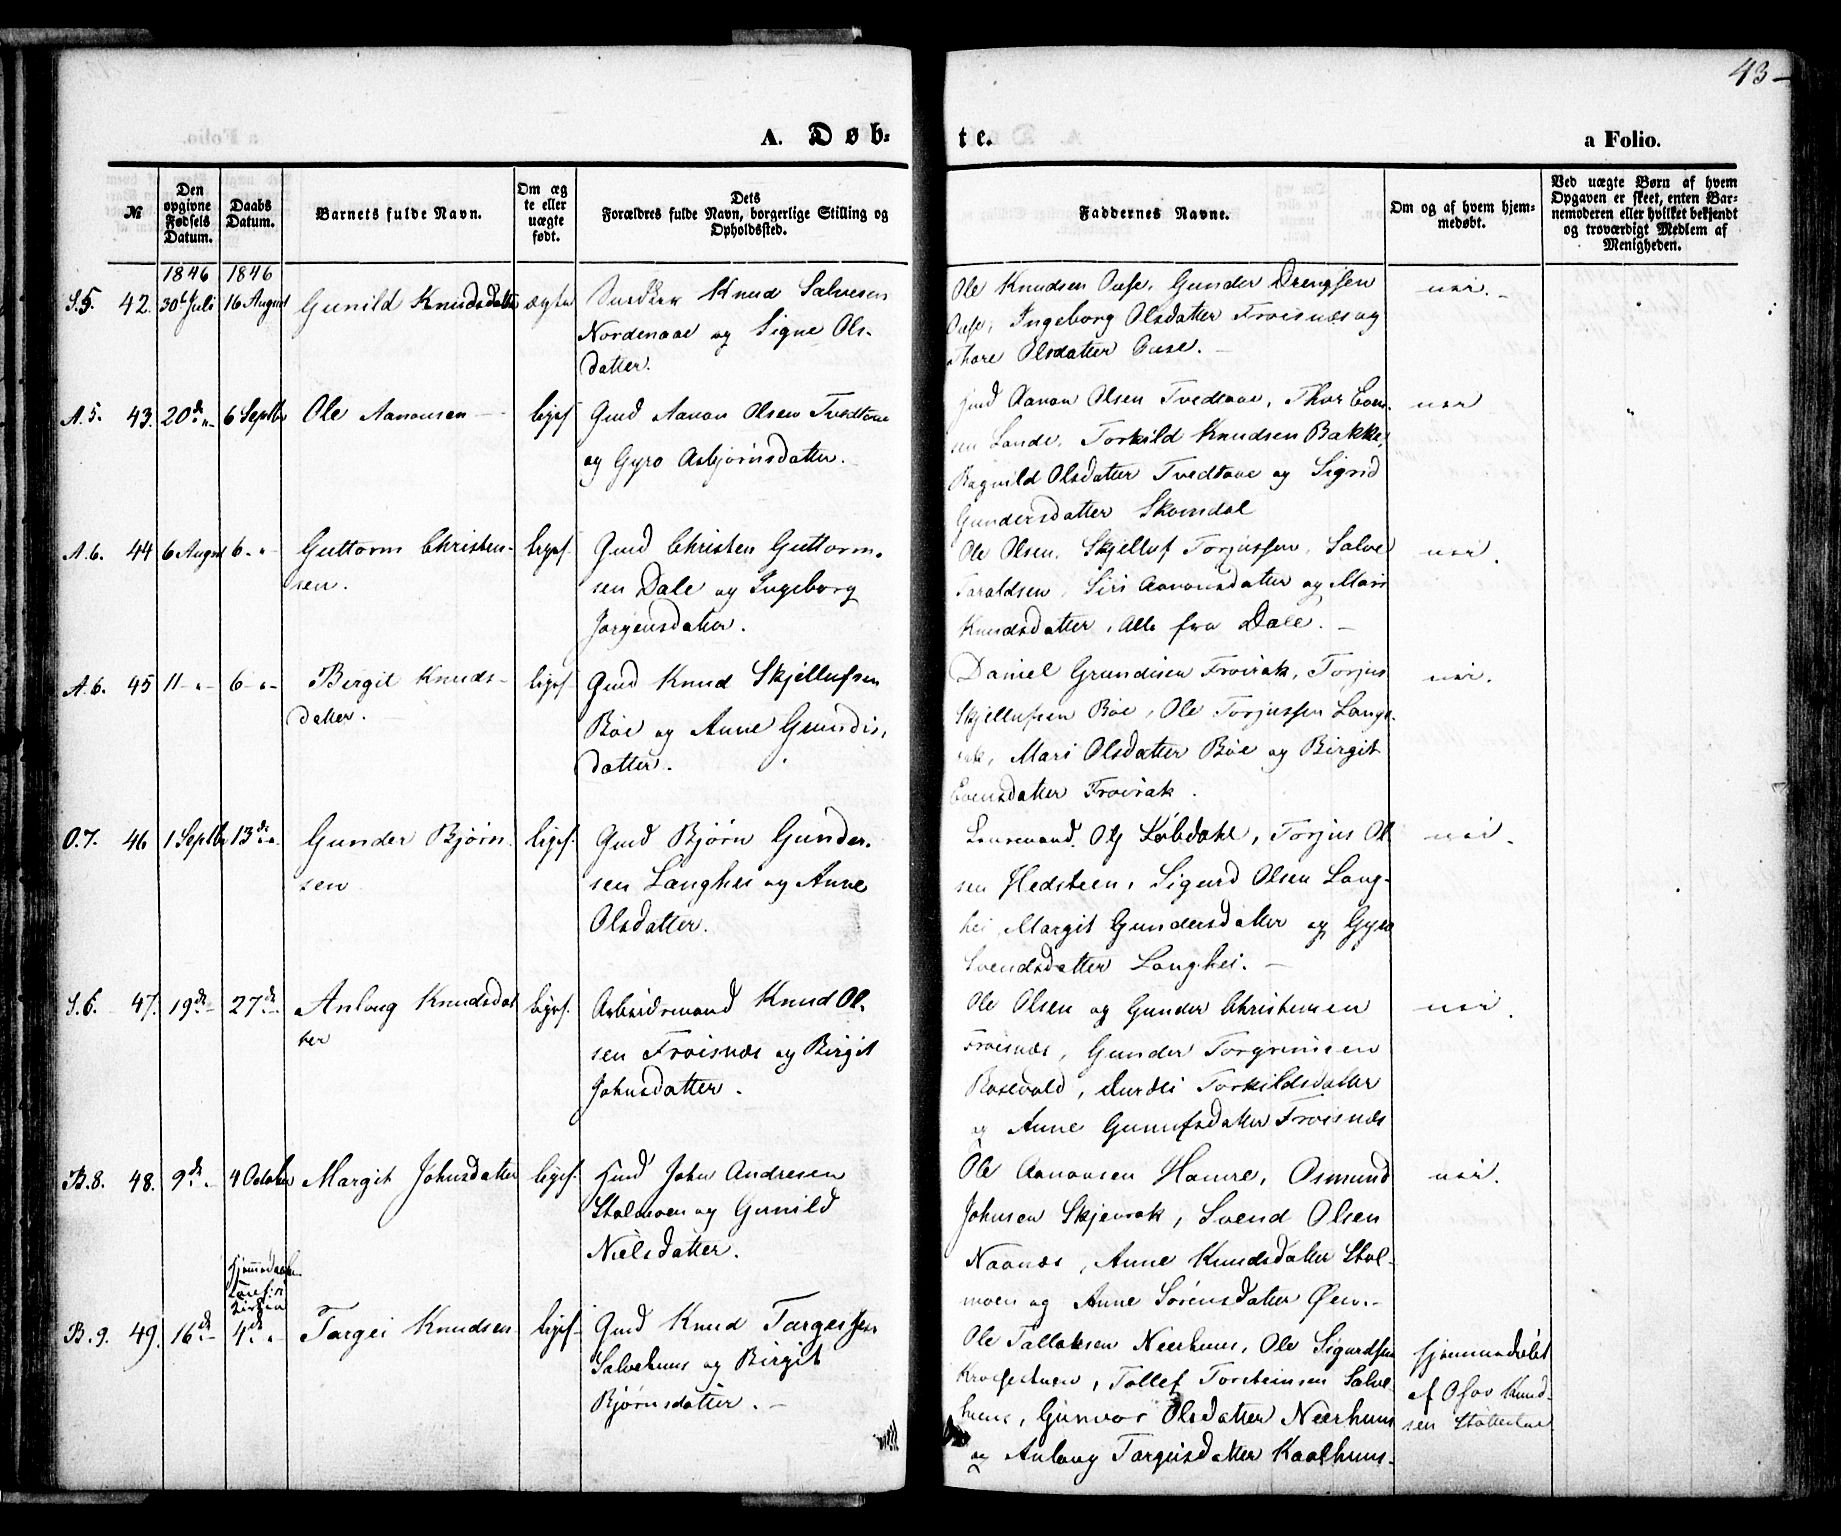 43
A. Døb-
te.
a Folio.
№
Den opgivne Fødsels Datum.
Daabs Datum.
Barnets fulde Navn.
Om ægte eller uægte født.
Dets Forældres fulde Navn, borgerlige Stilling og Opholdssted.
Faddernes Navne.
Om og af hvem hjemmedøbt.
Ved uægte Børn af hvem Opgaven er skeet, enten Barnemoderen eller hvilket bekjendt og troværdigt Medlem af Menigheden.
1846 1846
S. 5. 42. 30te Juli 16 August Gunild Knudsdatter ægte
Knud Salvesen
Nordenaae og Signe Ols-
datter.
Ole Knudsen Ouse, Gunder Drengsen
Ouse, Ingeborg Olsdatter Froisnæs og
Thore Olsdatter Ouse.
nei.
A. 5. 43. 20de " 6 Septbr Ole Aanonsen ligesf
Gmd Aanon Olsen Tvedtaae
og Gyro Asbjørnsdatter.
Gmd Aanon Olsen Tvedtaae, Thor Even-
sen Lande, Torkild Knudsen Bakke,
Ragnild Olsdatter Tvedtaae og Sigrid
Gundersdatter Skomdal
nei
A. 6. 44 6 August 6 " Guttorm Christen-
sen.
ligesf
Gmd Christen Guttorm-
sen Dale og Ingeborg
Jørgensdatter.
Ole Olsen, Skjelluf Torjussen, Salve
Taraldsen, Siri Aanonsdatter og Mari
Knudsdatter, Alle fra Dale.
nei.
A. 6. 45 11 " 6 " Birgit Knuds-
datter.
ligesf
Gmd Knud Skjellufsen
Bøe og Anne Grundis-
datter.
Daniel Grundisen Froirak, Torjus
Skjellufsen Bøe, Ole Torjussen Lange-
rak, Mari Olsdatter Bøe og Birgit
Evensdatter Froirak.
nei.
O. 7. 46 1 Septbr 13de " Gunder Bjørn-
sen
ligesf.
Gmd Bjørn Gunder-
sen Langhei og Anne
Olsdatter.
Lensmand O. Løbdahl, Torjus Ol-
sen Hedsteen, Sigurd Olsen Lang-
hei, Margit Gundersdatter og Gyro
Svendsdatter Langhei.
nei.
S. 6. 47. 19de 27de Anlaug Knudsdat
ter
ligesf.
Arbeidsmand Knud Ol-
sen Froisnæs og Birgit
Johnsdatter.
Ole Olsen og Gunder Christensen
Froisnæs, Gunder Torgrimsen
Rosevold, Torkildsdatter
og Anne Gunufsdatter Froisnæs
nei.
B. 8. 48. 9de " 4 October Margit Johnsdatter ligesf.
Hmd John Andresen
Stolmoen og Gunild
Nielsdatter.
Ole Aanonsen Hamre, Osmund
Johnsen Skjevrak, Svend Olsen
Naanæs, Anne Knudsdatter Stol-
moen og Anne Sørensdatter Øen.
nei.
Hjemmedaaben
Kirken
B. 9. 49. 16de 4de " Targei Knudsen ligesf
Gmd Knud Targeissen
Salvehuus og Birgit
Bjørnsdatter.
Ole Tallaksen Neerhuus, Ole Sigurdsen
Tollef Torsteinsen Salve-
huus, Gunvor Olsdatter Neerhuus
og Anlaug Targeisdatter Kaalhuus.
hjemmedøbt
af Knud-
sen